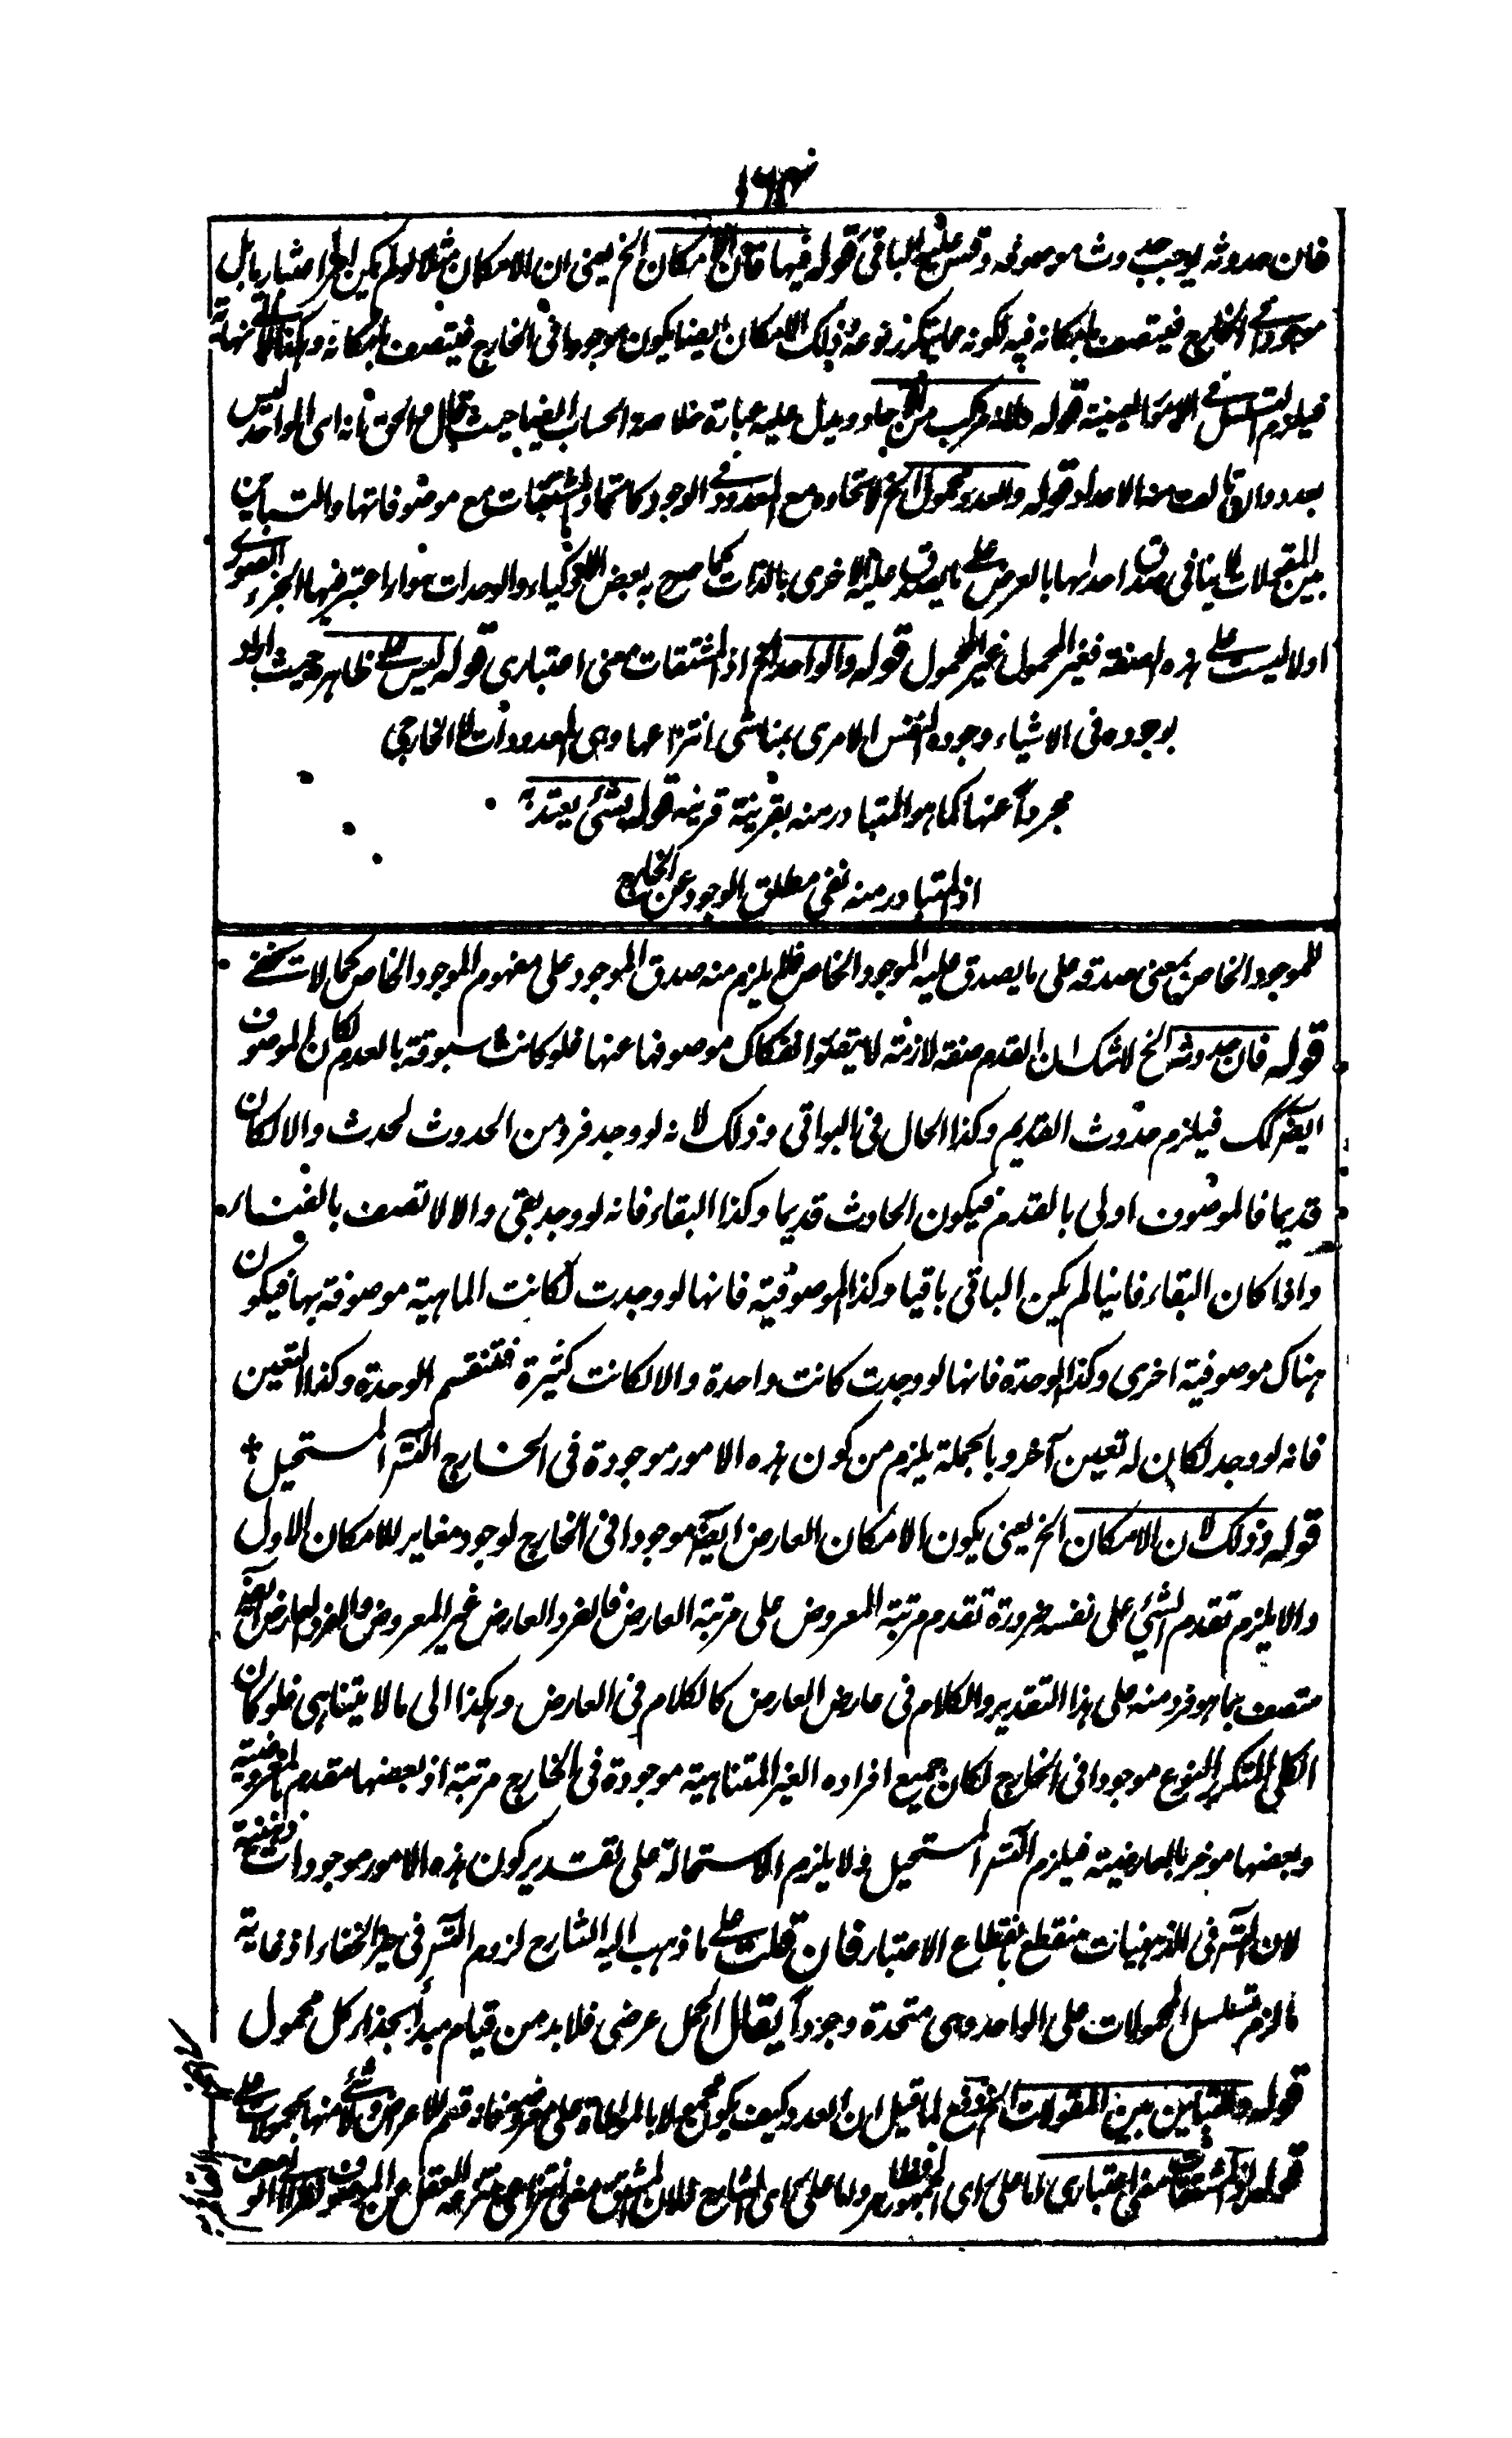 ١٦٣
فان حدوثه يوجب حدوث موصوفه وقس عليه الباقي قوله فيها فان الامكان الخ يعنى ان الامكان مثلا لو لم يكن امرا اعتباريا بل
موجودا فى الخارج فيتصف بامكانه فيه لكونه مما يتكرر نوعه وذلك الامكان ايضا يكون موجودا فى الخارج فيتصف بامكانه وهكذا الى نهاية
فيلزم التسلسل فى الامور العينية قوله ولانه مركب من الآحاد ويدل عليه عبارة خلاصة الحساب ايضا حيث قال والحق انه اى الواحد ليس
بعدد وان تألفت منه الاعداد قوله والعدد محمول الخ لاتحاده مع المعدود فى الوجود كاتحاد المشتقات مع موضوفاتها والتباين
بين المقولات لا ينافى صدق احداها بالعرض على ما يصدق عليه الاخرى بالذات كما صرح به بعض الاذكياء والوحدات سواء اعتبر فيها الجزء الصورى
اولا ليست على هذه الصفة فغير المحمول غير المحمول قوله والواحد الخ اذ المشتقات معنى اعتبارى قوله ليس على ظاهره حيث اراد
بوجوده فى الاشياء وجوده النفس الامرى بمناشى انتزاعها وهى المعدودات لا الخارجى
مجرداً عنها كما هو المتبادر منه بقرينة قرينه قوله بشئ يعتد به
اذ المتبادر منه نفى مطلق الوجود عن الخارج
للموجود الخاص بمعنى صدقه على ما يصدق عليه الموجود الخاص فلم يلزم منه صدق الموجود على مفهوم الموجود الخاص كما لا تخفى
قوله فان حدوثه الخ لا شك ان القدم صفة لازمة لا يتعقل انفكاك موصوفها عنها فلو كانت مسبوقة بالعدم لكان الموصوف
ايضا كك فيلزم حدوث القديم وكذا الحال فى البواقى وذلك لانه لو وجد فرد من الحدوث لحدث والا لكان
قديما فالموصوف اولى بالقدم فيكون الحادث قديما وكذا البقاء فانه لو وجد بقى والا لاتصف بالفناء
واذا كان البقاء فانيا لم يكن الباقى باقيا وكذا الموصوفية فانها لو وجدت لكانت الماهية موصوفة بها فيكون
هناك موصوفية اخرى وكذا الوحدة فانها لو وجدت كانت واحدة والا لكانت كثيرة فتنقسم الوحدة وكذا التعين
فانه لو وجد لكان له تعين آخر وبالجملة يلزم من كون هذه الامور موجودة فى الخارج التس المستحيل +
قوله وذلك لان الامكان الخ يعنى يكون الامكان العارض ايضا موجودا فى الخارج لوجود مغاير للامكان الاول
والا يلزم تقدم الشئ على نفسه ضرورة تقدم مرتبة المعروض على مرتبة العارض فالفرد العارض غير المعروض والفرد العارض ايضا
متصف بما هو فرد منه على هذا التقدير والكلام فى عارض العارض كالكلام فى العارض وهكذا الى ما لا يتناهى فلو كان
الكلى المتكرر النوع موجودا فى الخارج لكان جميع افراده الغير المتناهية موجودة فى الخارج مرتبة اذ بعضها مقدم بالمعروضية
وبعضها مؤخر بالعارضية فيلزم التس المستحيل ولا يلزم الاستحالة على تقدير كون هذه الامور موجودات ذهنية
لان التس فى الذهنيات منقطع بانقطاع الاعتبار فان قلت على ما ذهب اليه الشارح لزوم التس فى حيز الخفاء اذ غاية
ما لزم تسلسل المحمولات على الواحد وهى متحدة وجوداً يقال الحمل عرضى فلا بد من قيام مبدأ بحذاء كل محمول
قوله والتباين بين المقولات الخ دفع لما قيل ان العدد كيف يكون محمولا بالمواطاة على معروضه
قوله اذ المشتقات معنى اعتبارى اما على راى الجمهور واما على راى الشارح فلان المشتق معنى انتزاعى ينتزعه العقل عن الموصوف